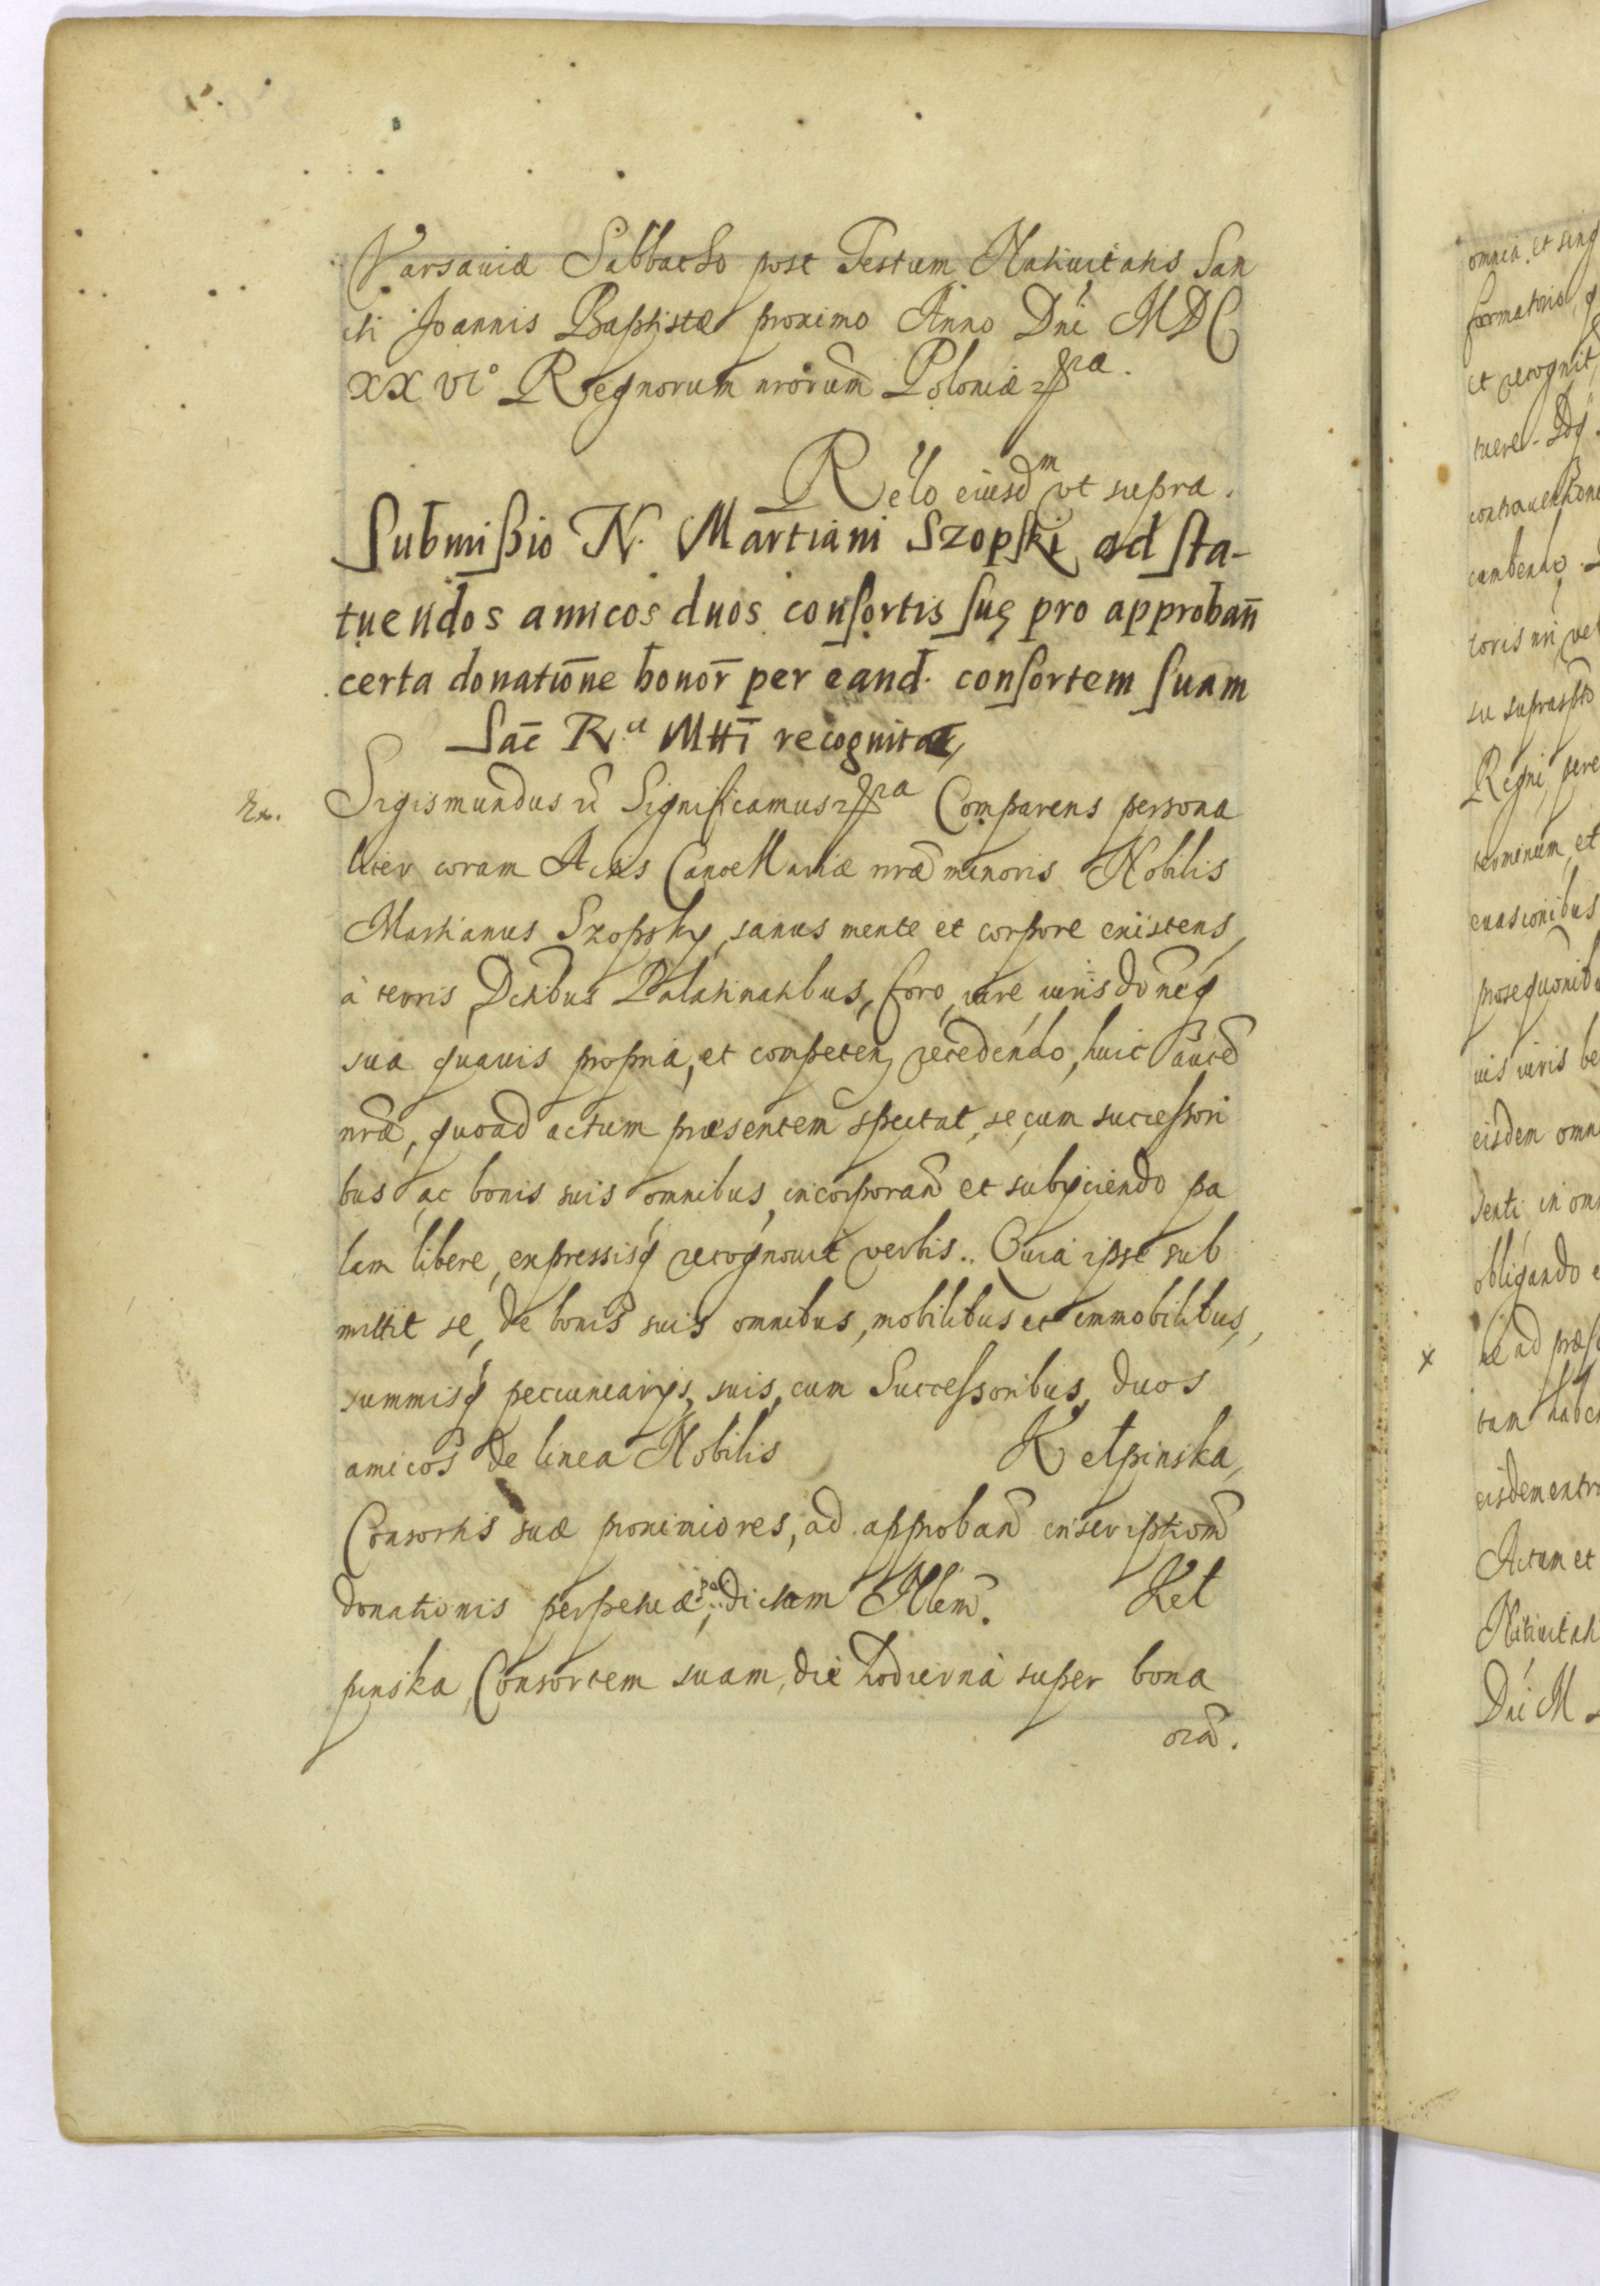 Varsaviæ Sabbatho post Festum Nativitatis San
cti Joannis Baptistæ proximo Anno Dni MDC
XX VIº Regnorum nrorum Poloniæ
Relo eiusdm vt supra.
Submißio N. Martiani Szopski ad sta-
tuendos amicos duos consortis suę pro approban
certa donatione bonor per eand. consortem suam
Sac R. Mtti recognita
Sigismundus Significamus Comparens persona
liter coram Actis Cancellariæ nræ minoris Nobilis
Martianus Szopsky, sanus mente et corpore existens,
à terris, Dctibus Palatinatibus, foro, iure, iurisdoneq
sua quavis propria, et competen recedendo, huic
nræ, quoad actum præsentem spectat, se cum successori
bus ac bonis suis omnibus, incorporand et subijciendo pa
lam libere, expressisq recognouit verbis.. Quia ipse sub
mittit se, de bonis suis omnibus, mobilibus et immobilibus,
summisq pecuniarijs, suis, cum Successoribus, duos
amicos de linea Nobilis Kełpinska,
Consortis suæ proximiores, ad approband inscriptiom
donationis perpetuæ, dictam Nlem. Keł
pinska, Consortem suam, die hodierna super bona
omnia et sing
formatorio q
et recognit
tuere. Dq
contrauention
cumbendo.
toris nri, vel
su suprascpto
Regni pere
terminum, et
euasionibus
prosequonibu
uis iuris be
eisdem omn
senti in om
obligando e
x ne ad præs
tam habe
eisdem extr
Actum et
Natiuitati
Dni M